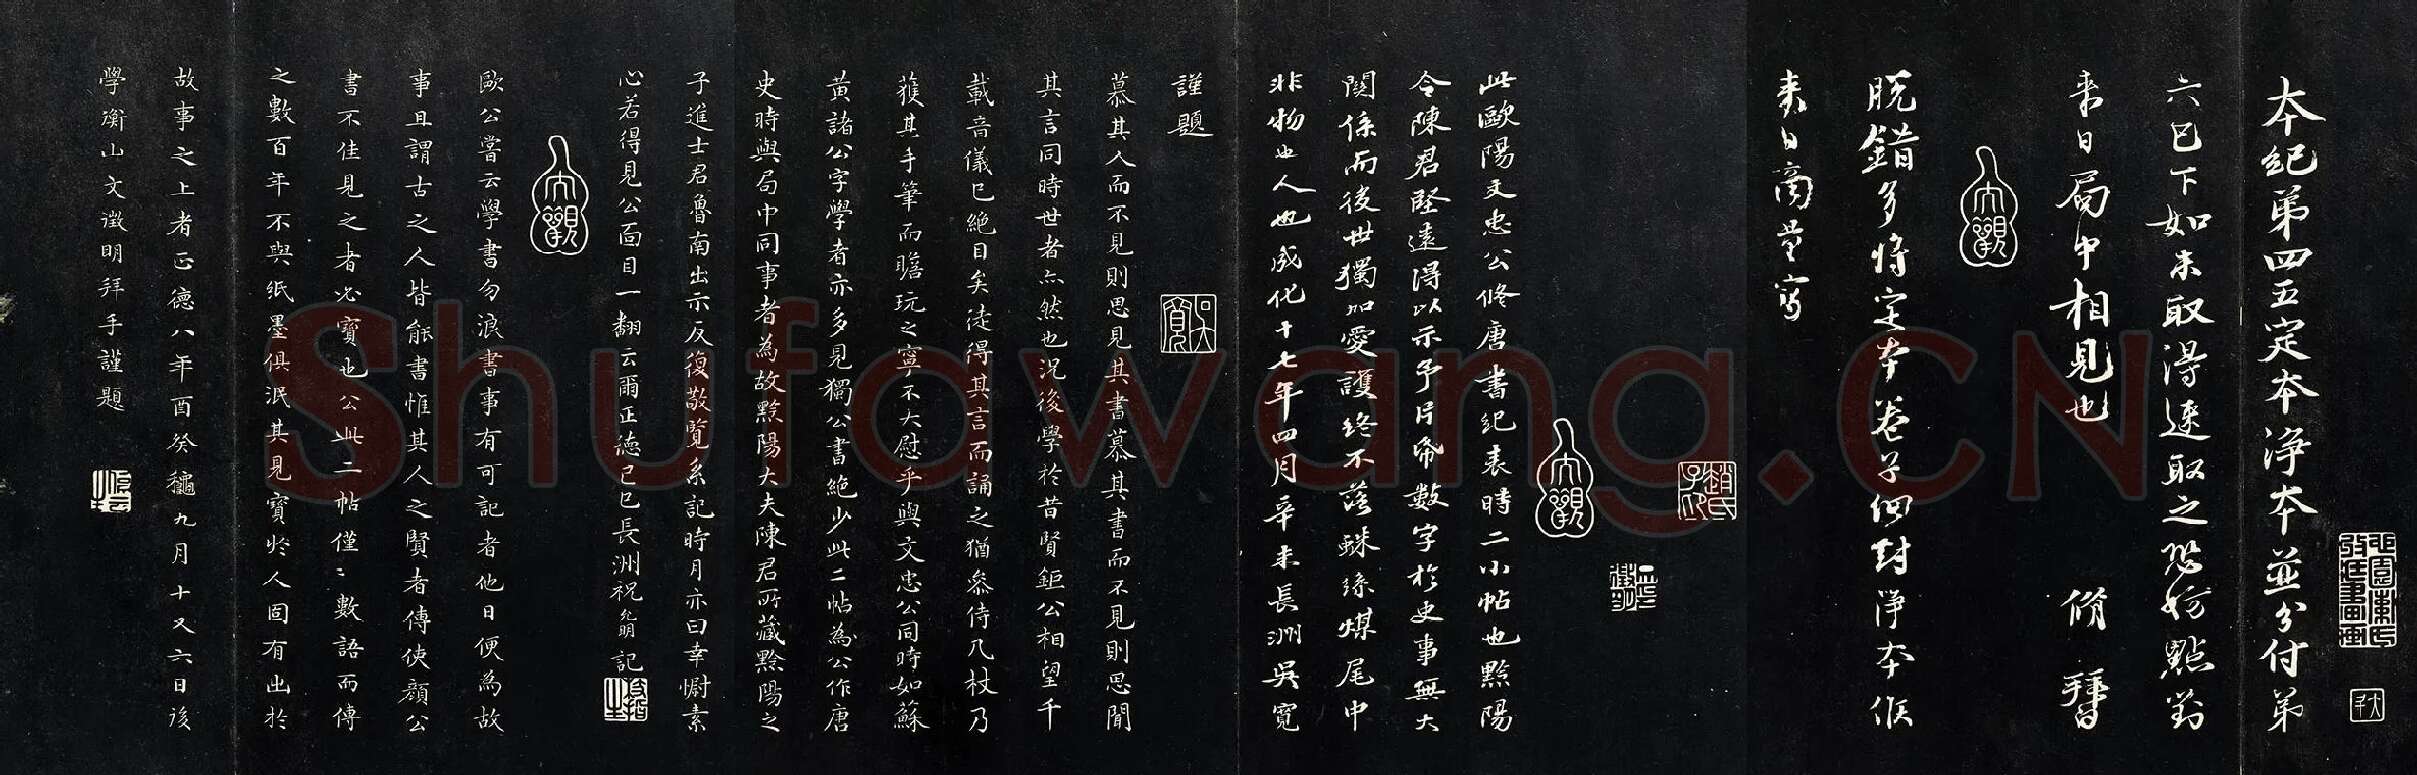 本紀第四五定本淨本並分付弟
六已下如未取得速取之恐妨點對
来日局中相見也　脩　拜
大觀
脱錯多将定本卷子細對淨本候
来日商量寫
趙氏子印
大觀
此歐陽文忠公修唐書紀表時二小帖也黟陽
令陳君墜遠得以示予片帋數字於史事無大
関係而後世獨加愛護終不落蛛絲煤尾中
非物也人也成化十七年四月辛未長洲吳寬
謹題
慕其人而不見則思見其書慕其書而不見則思聞
其言同時世者亦然也況後學於昔賢鉅公相望千
載音儀已絶目矣徒得其言而誦之猶叅侍几杖乃
獲其手筆而瞻玩之寧不大慰乎與文忠公同時如蘇
黄諸公字學者亦多見獨公書絶少此二帖為公作唐
史時與局中同事者為故黟陽大夫陳君所藏黟陽之
子進士君魯南出示反復敬覽系記時月亦曰幸慰素
心若得見公面目一翻云爾正德己巳長洲祝允明記
大觀
歐公嘗云學書勿浪書事有可記者他日便為故
事且謂古之人皆能書惟其人之賢者傳使顔公
書不佳見之者必寶也公此二帖僅〻數語而傳
之數百年不與紙墨俱泯其見寳於人固有出於
故事之上者正德八年酉癸龝九月十又六日後
學衡山文徵明拜手謹題
Shufawang.CN